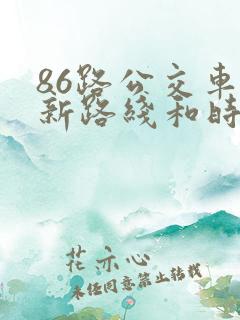 86路公交车
新路线和时
花亦心
未经同意禁止转载